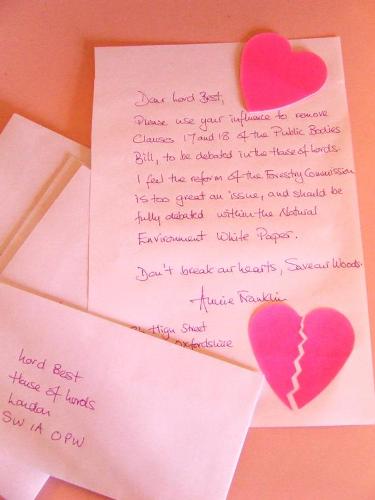 Dear Lord Best,
Please use your influence to remove
Clauses 17 and 18 of the Public Bodies
Bill, to be debated in the House of Lords.
I feel the reform of the Forestry Commission
is too great an issue, and should be
fully debated within the Natural
Environment White Paper.
Don't break our hearts, Save our Woods.
Annie Franklin
High Street
Oxfordshire
Lord Best
House of Lords
London
SW1A 0PW